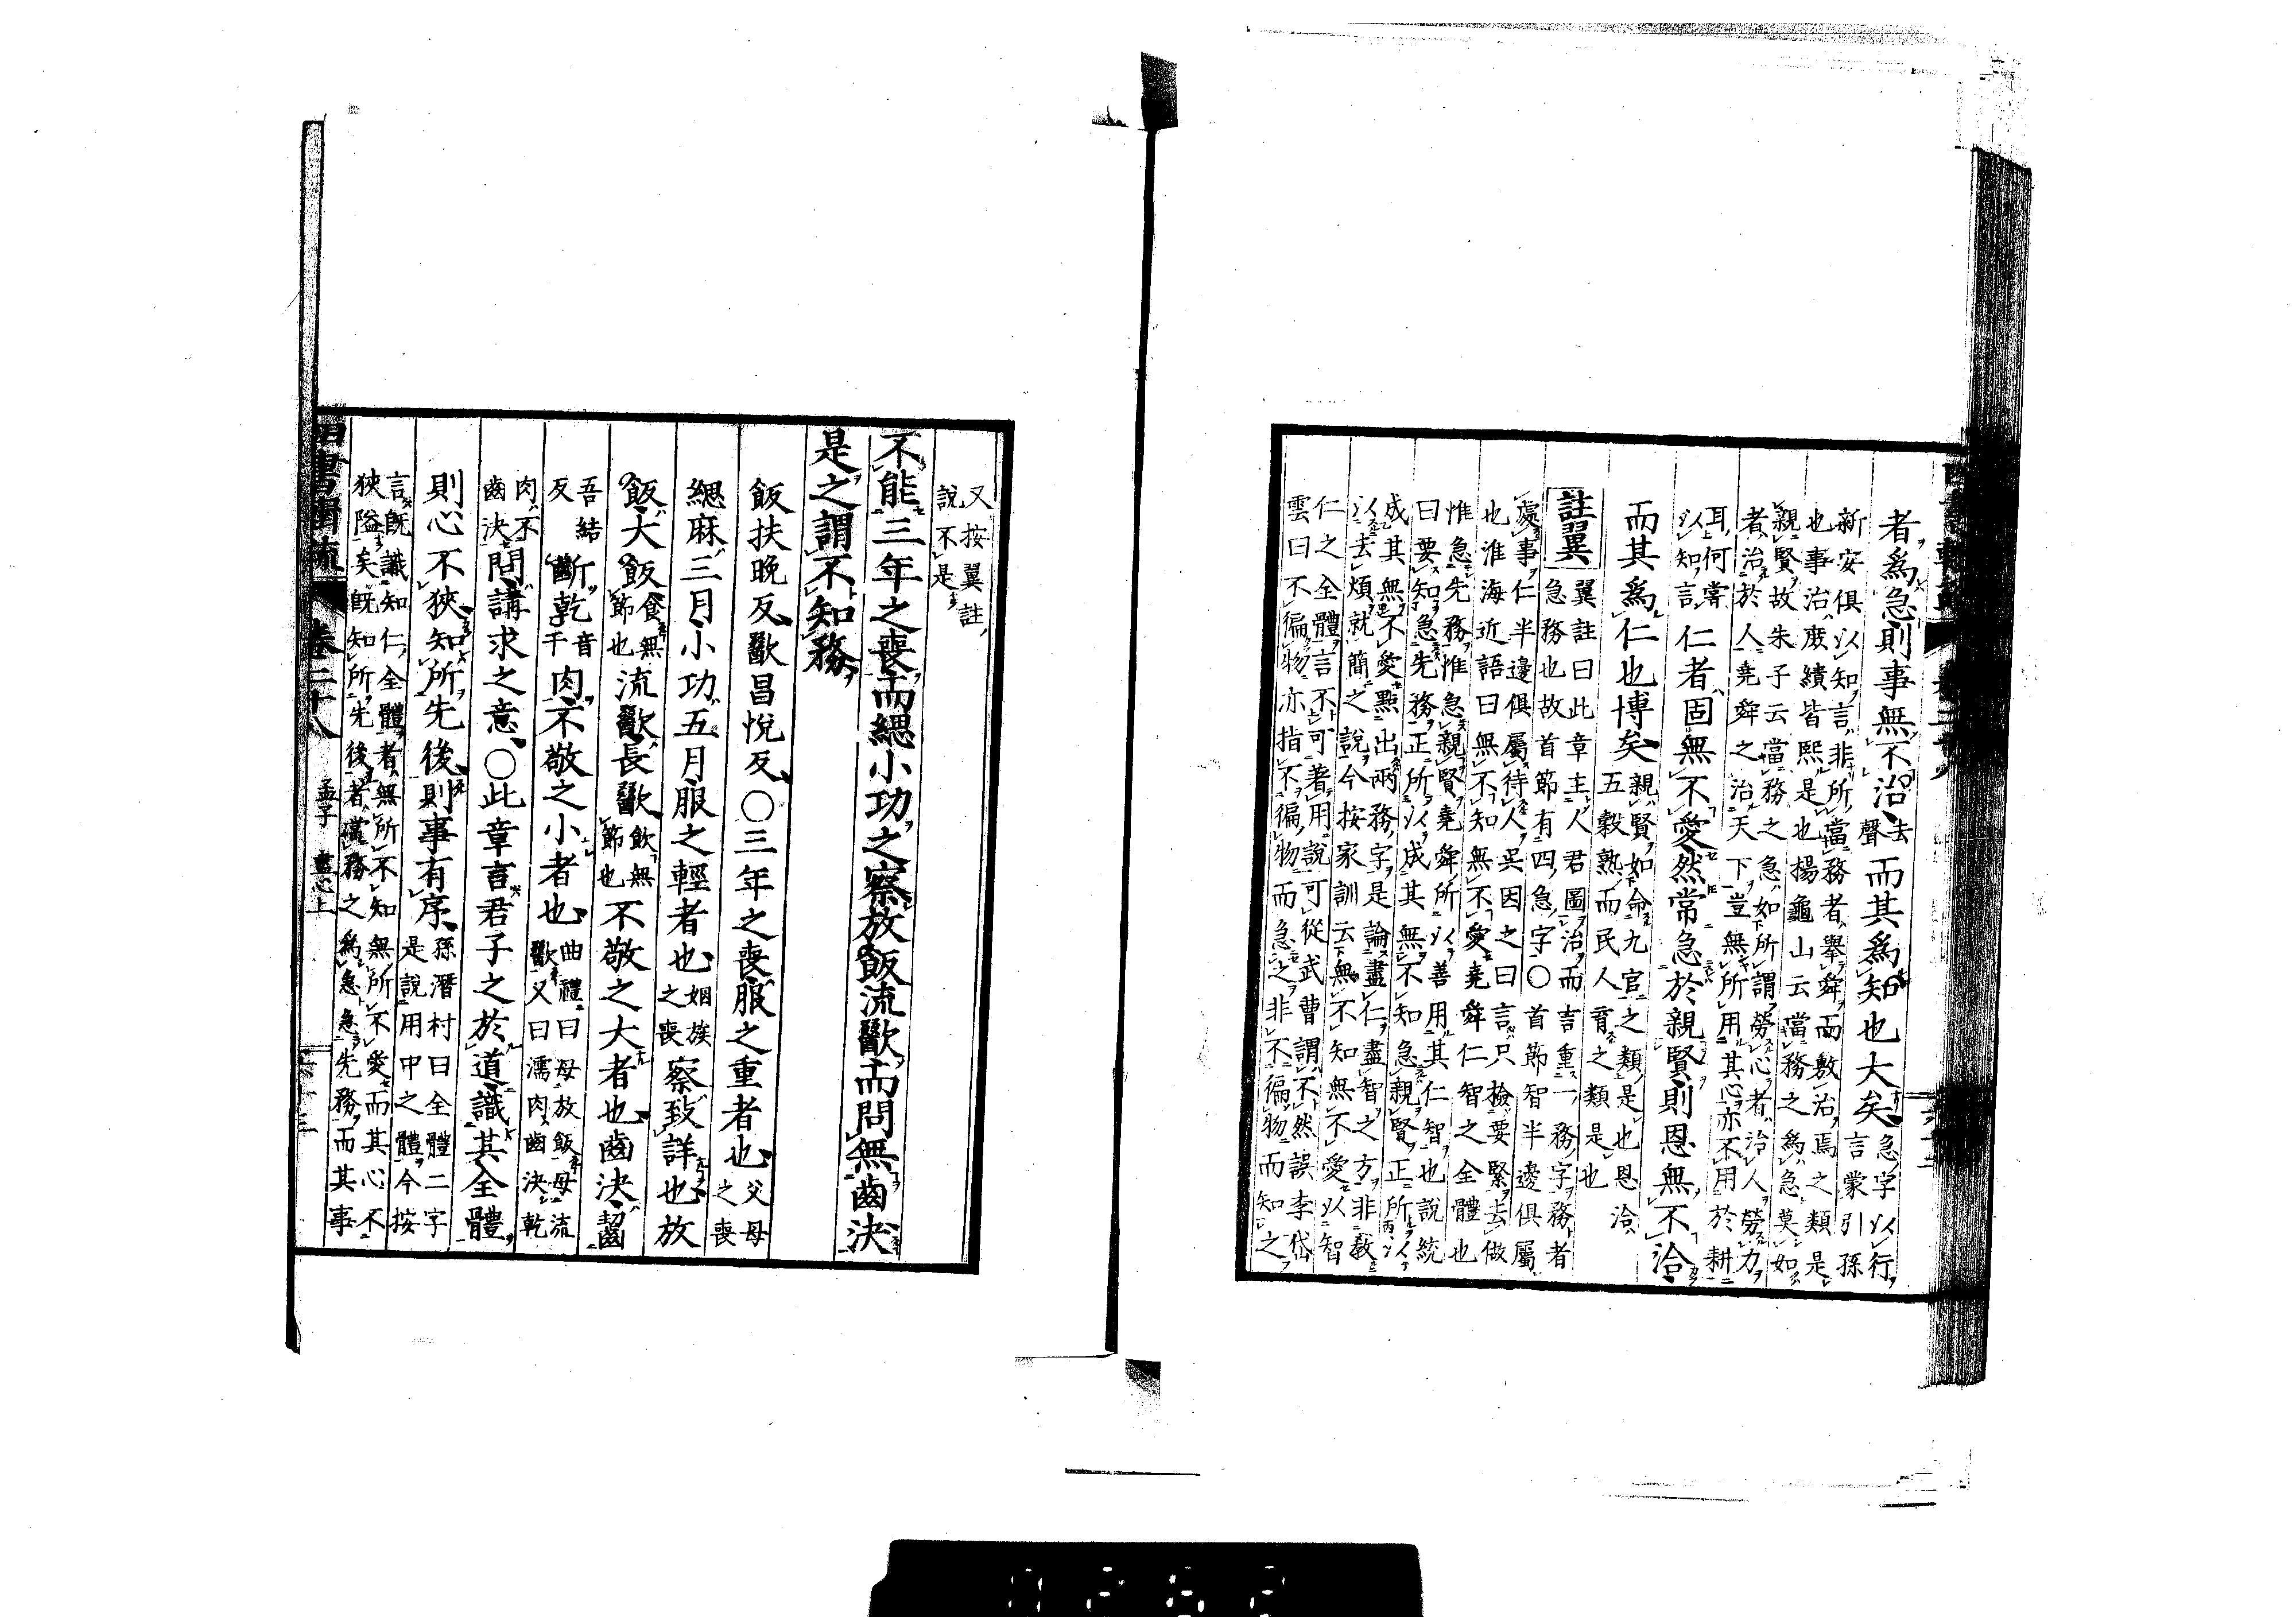 者爲急則事無不治去聲而其爲知也大矣急字以行言蒙引孫
新安俱以知言非所當務者舉舜而敷治焉之類是
也事治庶績皆熙是也揚龜山云當務之爲急莫如
親賢故朱子云當務之急如所謂勞心者治人勞力
者治於人堯舜之治天下豈無所用其心亦不用於耕
耳何嘗以知言仁者固無不愛然常急於親賢則恩無不洽
而其爲仁也博矣親賢如命九官之類是也恩洽五穀熟而民人育之類是也
註翼翼註曰此章主人君圖治而吉重一務字務者
急務也故首節有四急字○首節智半邊俱屬
處事仁半邊俱屬待人吳因之曰言只撿要緊去做
也淮海近語曰無不知無不愛堯舜仁智之全體也
惟急先務惟急親賢堯舜所以善用其仁智也說統
曰要知急先務正所以成其無不知急親賢正所以
成其無不愛點出兩務字是論盡仁盡智之方非教
以去煩就簡之說今按家訓云無不知無不愛以智
仁之全體言不可著用說可從武曹謂不然誤李岱
雲曰不徧物亦指不徧物而急之非不徧物而知之
又按翼註
說不是
不能三年之喪而緦小功之察放飯流歠而問無齒決
是之謂不知務
飯扶晚反歠昌悅反○三年之喪服之重者也父母之喪
緦麻三月小功五月服之輕者也姻族之喪察致詳也放
飯大飯食無節也流歠長歠飲無節也不敬之大者也齒決齧
吾結反斷乾音干肉不敬之小者也曲禮曰毋放飯毋流歠又曰濡肉齒決乾
肉不齒決問講求之意○此章言君子之於道識其全體
則心不狹知所先後則事有序孫潛村曰全體二字是說用中之體今按
言旣識知仁全體者無所不知無所不愛而其心不
狹隘矣旣知所先後者當務之爲急急先務而其事
四書 卷二十八 孟子 盡心上